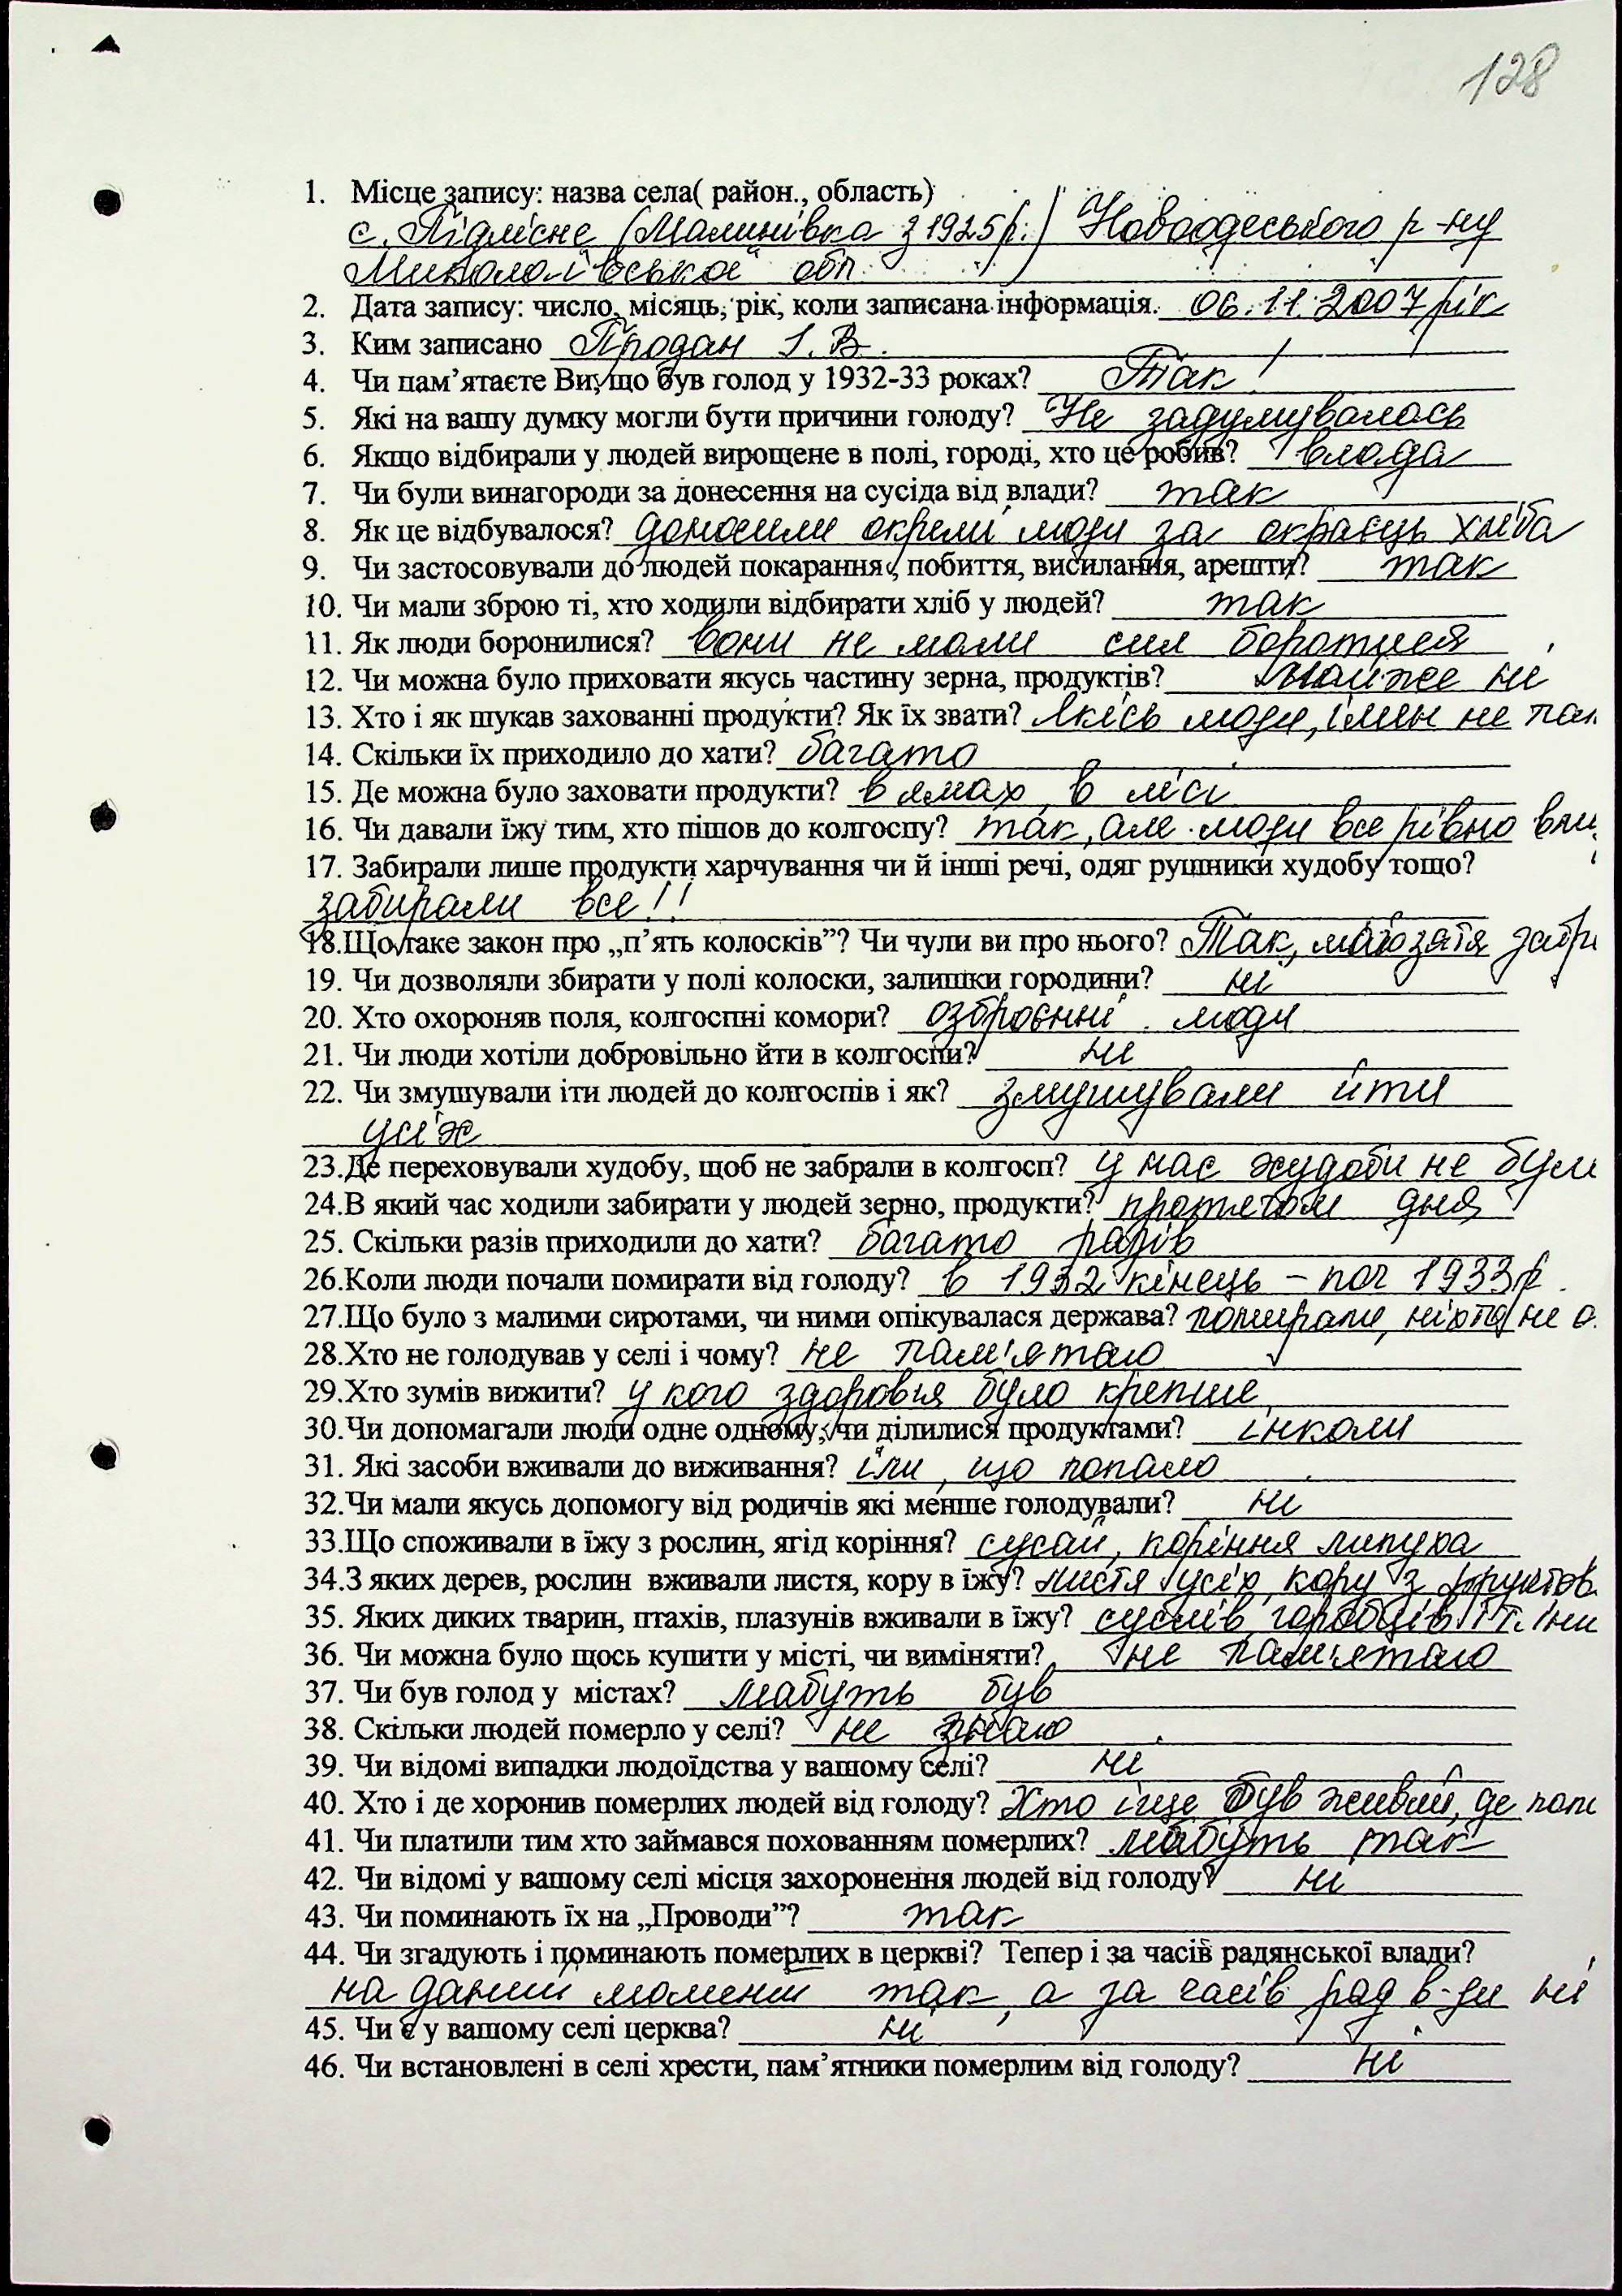 128
1. Місце запису: назва села( район., область)
с. Підлісне (Малинівка з 1925 р.) Новоодеського р-ну
Миколаївської обл.
2. Дата запису: число, місяць, рік, коли записана інформація. 06.11.2007 рік
3. Ким записано Продан І. В.
4. Чи пам’ятаєте Ви, що був голод у 1932-33 роках? Так!
5. Які на вашу думку могли бути причини голоду? Не задумувалась
6. Якщо відбирали у людей вирощене в полі, городі, хто це робив? влада
7. Чи були винагороди за донесення на сусіда від влади? так
8. Як це відбувалося? доносили окремі люди за окраєць хліба
9. Чи застосовували до людей покарання, побиття, висилання, арешти? так
10. Чи мали зброю ті, хто ходили відбирати хліб у людей? так
11. Як люди боронилися? вони не мали сил боротися
12. Чи можна було приховати якусь частину зерна, продуктів? Майже ні
13. Хто і як шукав захованні продукти? Як їх звати? Якісь люди, імен не пам
14. Скільки їх приходило до хати? багато
15. Де можна було заховати продукти? в ямах, в лісі
16. Чи давали їжу тим, хто пішов до колгоспу? так, але люди все рівно
17. Забирали лише продукти харчування чи й інші речі, одяг рушники худобу тощо?
забирали все!!
18.Що таке закон про „п’ять колосків”? Чи чули ви про нього? Так, мого зятя
19. Чи дозволяли збирати у полі колоски, залишки городини? ні
20. Хто охороняв поля, колгоспні комори? озброєнні люди
21. Чи люди хотіли добровільно йти в колгоспи? ні
22. Чи змушували іти людей до колгоспів і як? змушували йти
усіх
23.Де переховували худобу, щоб не забрали в колгосп? у нас худоби не було
24.В який час ходили забирати у людей зерно, продукти? протягом дня
25. Скільки разів приходили до хати? багато разів
26.Коли люди почали помирати від голоду? в 1932 кінець – поч 1933р.
27.Що було з малими сиротами, чи ними опікувалася держава? помирали, ніхто не о
28.Хто не голодував у селі і чому? не пам'ятаю
29.Хто зумів вижити? у кого здоровія було крепше
30.Чи допомагали люди одне одному, чи ділилися продуктами? інколи
31. Які засоби вживали до виживання? їли, що попало
32.Чи мали якусь допомогу від родичів які менше голодували? ні
33.Що споживали в їжу з рослин, ягід коріння? сусай, коріння липуха
34.З яких дерев, рослин вживали листя, кору в їжу? листя усіх, кору з фруктов
35. Яких диких тварин, птахів, плазунів вживали в їжу? суслів, горобців і т. інш
36. Чи можна було щось купити у місті, чи виміняти? не пам'ятаю
37. Чи був голод у містах? мабуть був
38. Скільки людей померло у селі? не знаю
39. Чи відомі випадки людоїдства у вашому селі? ні
40. Хто і де хоронив померлих людей від голоду? Хто іще був живий, де
41. Чи платили тим хто займався похованням померлих? мабуть так
42. Чи відомі у вашому селі місця захоронення людей від голоду? ні
43. Чи поминають їх на „Проводи”? так
44. Чи згадують і поминають померлих в церкві? Тепер і за часів радянської влади?
на даний момент так, а за часів рад в-ди ні
45. Чи є у вашому селі церква? ні
46. Чи встановлені в селі хрести, пам’ятники померлим від голоду? ні